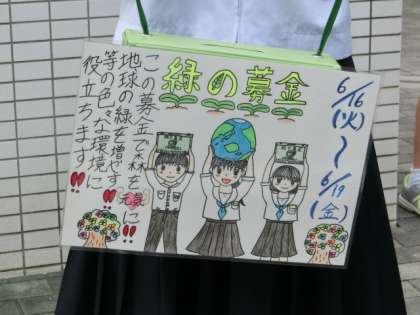 緑の募金
6/16
(火)
～
6/19
(金)
この募金で森を元気に
地球の緑を増やす
等の色々な環境に
役立ちます!!